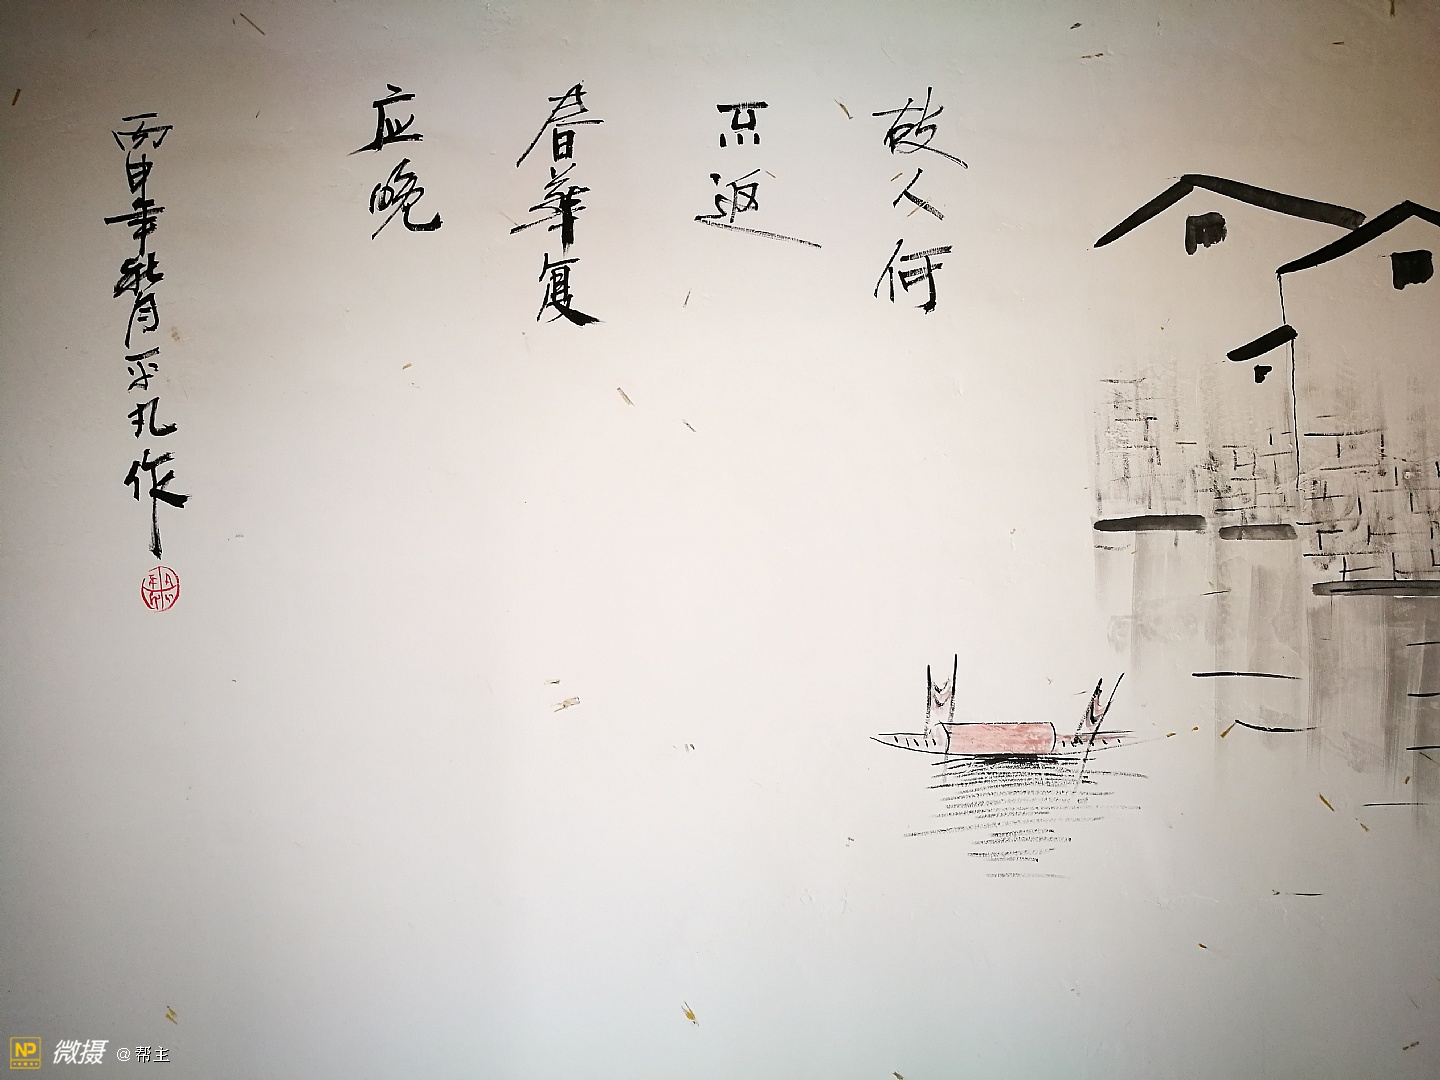 故人何
不返
春華复
应晚
丙申年秋月平凡作
NP 微摄 @帮主